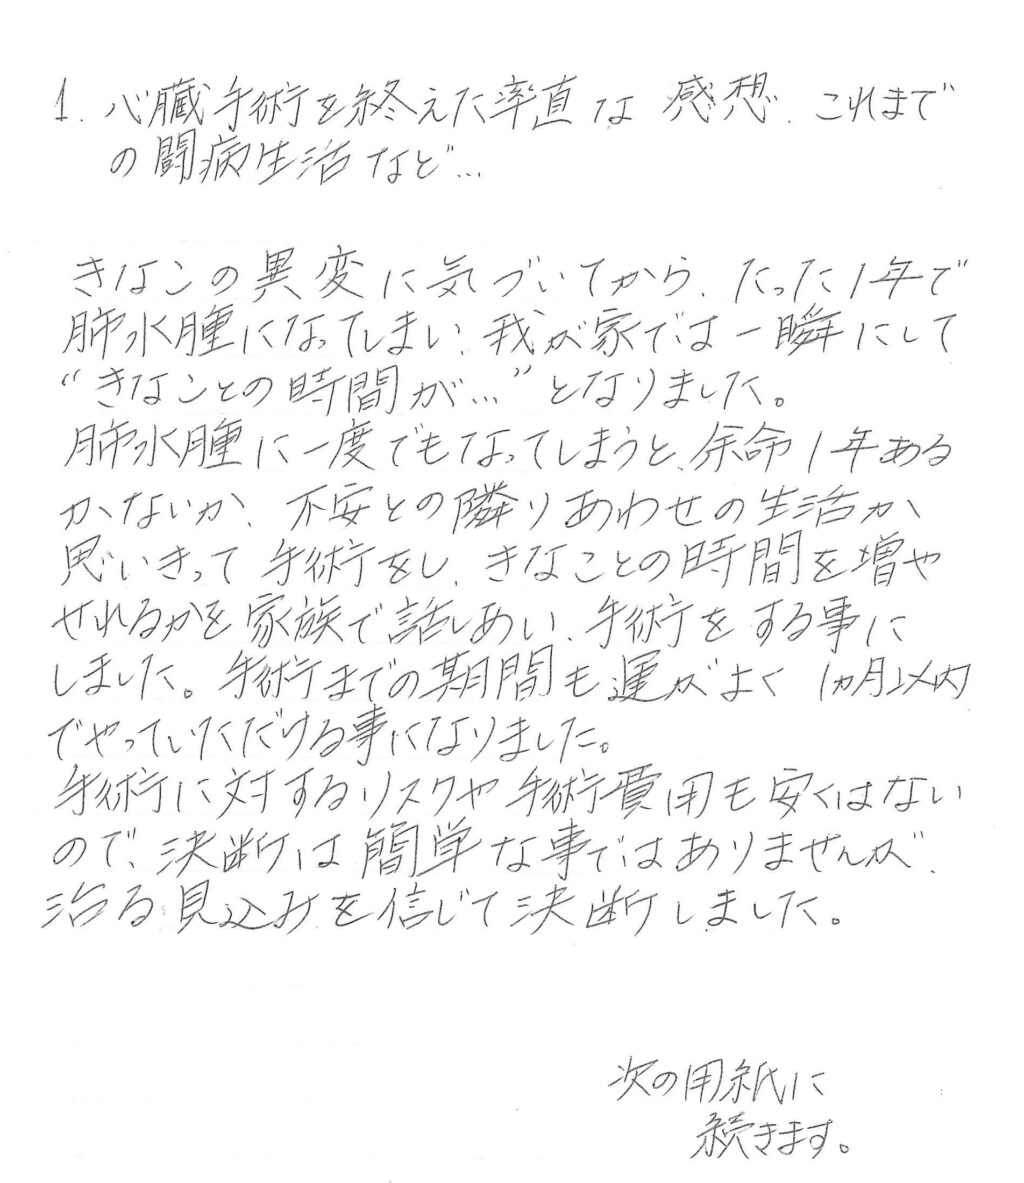 1. 心臓手術を終えた率直な 感想、これまで
の闘病生活など…
きなこの異変に気づいてから、たった1年で
肺水腫になってしまい、我が家では一瞬にして
“きなことの時間が…”となりました。
肺水腫に一度でもなってしまうと、余命1年ある
かないか、不安との隣りあわせの生活か
思いきって手術をし、きなことの時間を増や
せれるかを家族で話しあい、手術をする事に
しました。手術までの期間も運がよく 1ヵ月以内
でやっていただける事になりました。
手術に対するリスクや手術費用も安くはない
ので、決断は簡単な事ではありませんが、
治る見込みを信じて決断しました。
次の用紙に
続きます。